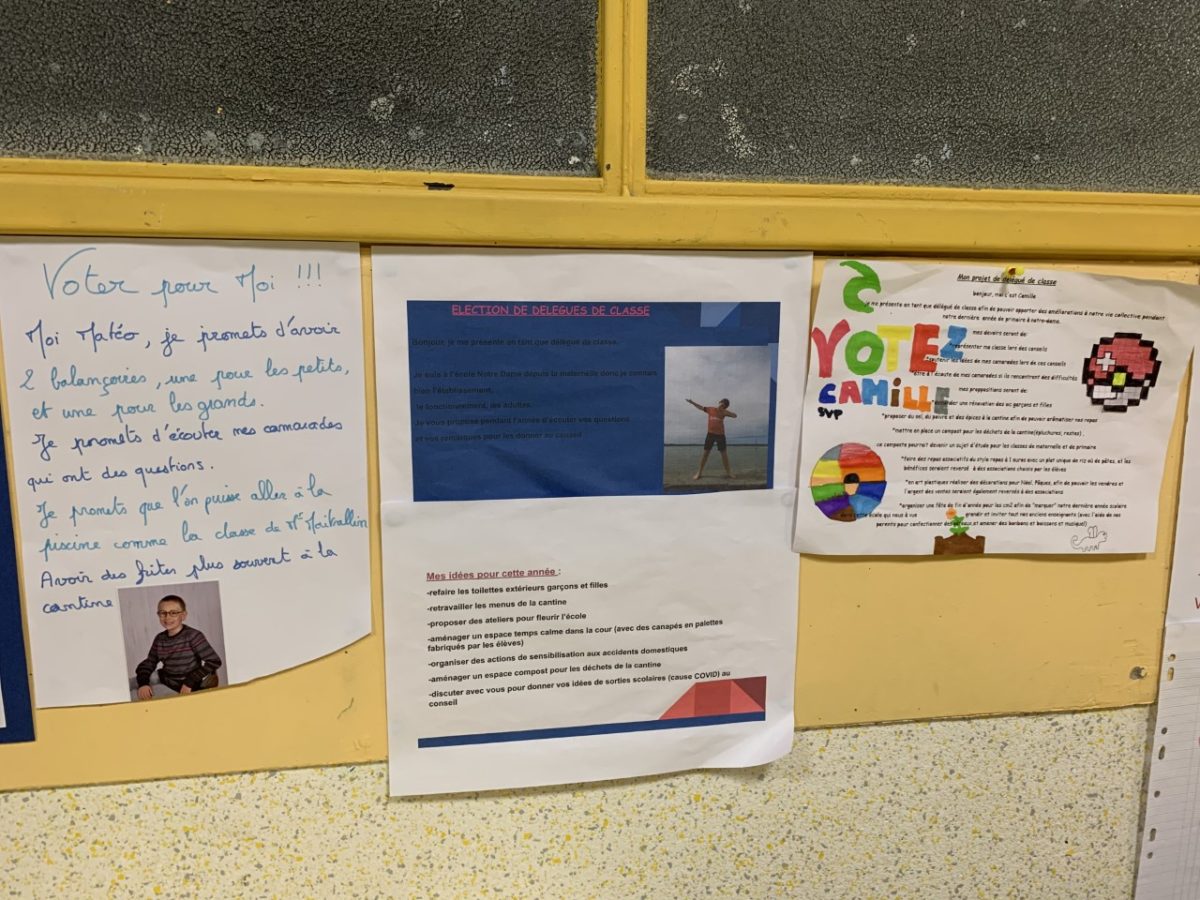 Voter pour Moi !!!
Moi Matéo, je promets d'avoir
2 balançoires, une pour les petits,
et une pour les grands.
Je promets d'écouter mes camarades
qui ont des questions.
Je promets que l'on puisse aller à la
piscine comme la classe de
Avoir des frites plus souvent à la
cantine
ELECTION DE DELEGUES DE CLASSE
Bonjour, je me présente en tant que délégué de classe.
Je suis à l'école Notre Dame depuis la maternelle donc je connais
bien l'établissement,
le fonctionnement, les adultes.
Je vous propose pendant l'année d'écouter vos questions
et vos remarques pour les donner au conseil
Mes idées pour cette année :
-refaire les toilettes extérieurs garçons et filles
-retravailler les menus de la cantine
-proposer des ateliers pour fleurir l'école
-aménager un espace temps calme dans la cour (avec des canapés en palettes
fabriqués par les élèves)
-organiser des actions de sensibilisation aux accidents domestiques
-aménager un espace compost pour les déchets de la cantine
-discuter avec vous pour donner vos idées de sorties scolaires (cause COVID) au
conseil
VOTEZ
CAMILLE
SVP
Mon projet de délégué de classe
bonjour, moi c'est Camille
je me présente en tant que délégué de classe afin de pouvoir apporter des améliorations à notre vie collective pendant
notre dernière année de primaire à notre-dame.
mes devoirs seront de:
représenter ma classe lors des conseils
soutenir les idées de mes camarades lors de ces conseils
*être à l'écoute de mes camarades si ils rencontrent des difficultés
mes proppositions seront de:
une rénovation des wc garçons et filles
*proposer du sel, du poivre et des épices à la cantine afin de pouvoir arômatiser nos repas
*mettre en place un compost pour les déchets de la cantine(épluchures, restes) .
ce composte pourrait devenir un sujet d'étude pour les classes de maternelle et de primaire
*faire des repas associatifs du style repas à 1 euros avec un plat unique de riz où de pâtes, et les
bénéfices seraient reversé à des associations choisis par les élèves
*en art plastiques réaliser des décorations pour Nöel, Pâques, afin de pouvoir les vendres et
l'argent des ventes seraient également reversés à des associations
*organiser une fête de fin d'année pour les cm2 afin de "marquer" notre dernière année scolaire
dans cette école qui nous à vue grandir et inviter tout nos anciens enseignants (avec l'aide de nos
parents pour confectionner des gâteaux et amener des bonbons et boissons et musique!)